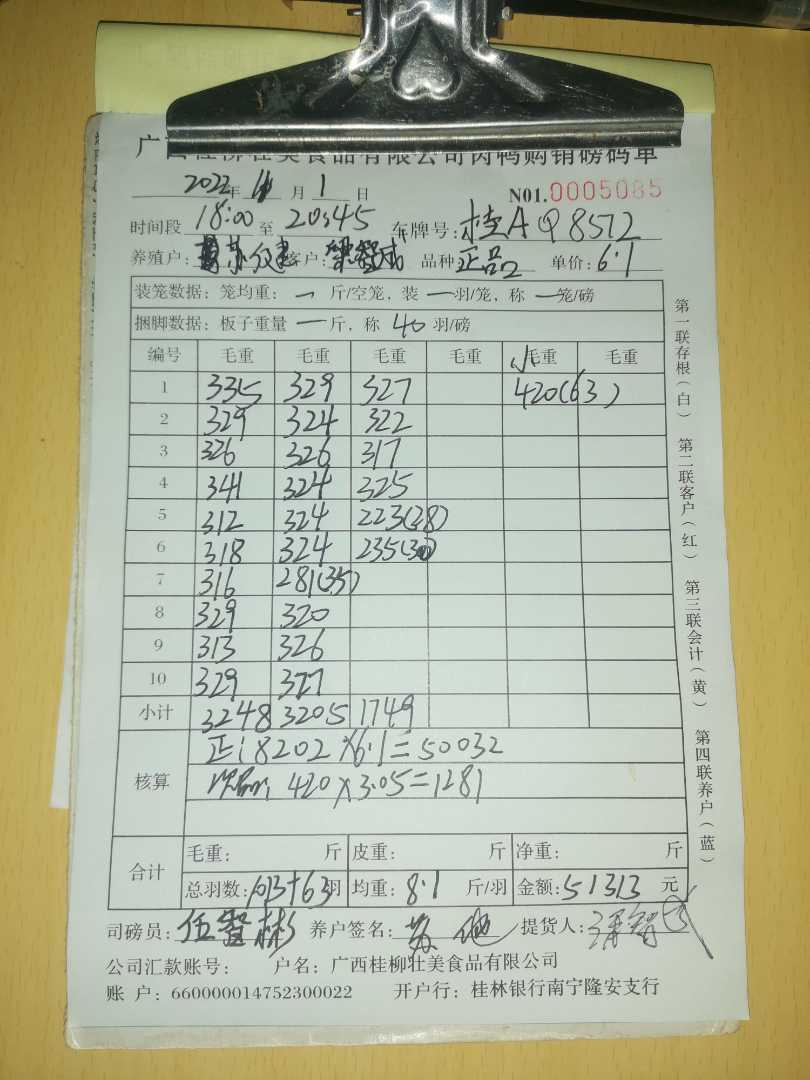 广西桂柳壮美食品有限公司肉鸭购销磅码单
2022年 11月 1日 N01.0005085
时间段 18:00 至 20:45 车牌号: 桂A Q8572
养殖户: 客户: 品种 正品 单价: 6.1
装笼数据: 笼均重: 一 斤/空笼, 装 一 羽/笼, 称 一 笼/磅
捆脚数据: 板子重量 一 斤, 称 40 羽/磅
编号 毛重 毛重 毛重 毛重 小毛重 毛重
1 335 329 327 420(63)
2 329 324 322
3 326 326 317
4 341 324 325
5 312 324 223(38)
6 318 324 235(30)
7 316 281(35)
8 329 320
9 313 326
10 329 327
小计 3248 3205 1749
核算
正: 8202×6.1=50032
420×3.05=1281
合计
毛重: 斤 皮重: 斤 净重: 斤
总羽数: 1013+63羽 均重: 8.1 斤/羽 金额: 51313 元
司磅员: 伍 彬 养户签名: 苏 提货人:
公司汇款账号: 户名: 广西桂柳壮美食品有限公司
账 户: 660000014752300022 开户行: 桂林银行南宁隆安支行
第一联存根(白) 第二联客户(红) 第三联会计(黄) 第四联养户(蓝)